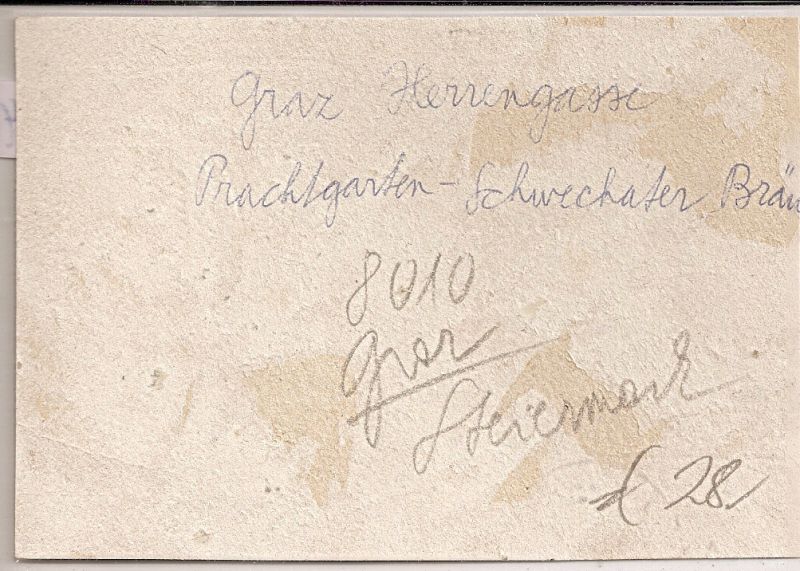 Graz Herrengasse
Prachtgarten - Schwechater Bräu
8010
Graz
Steiermark
€ 28